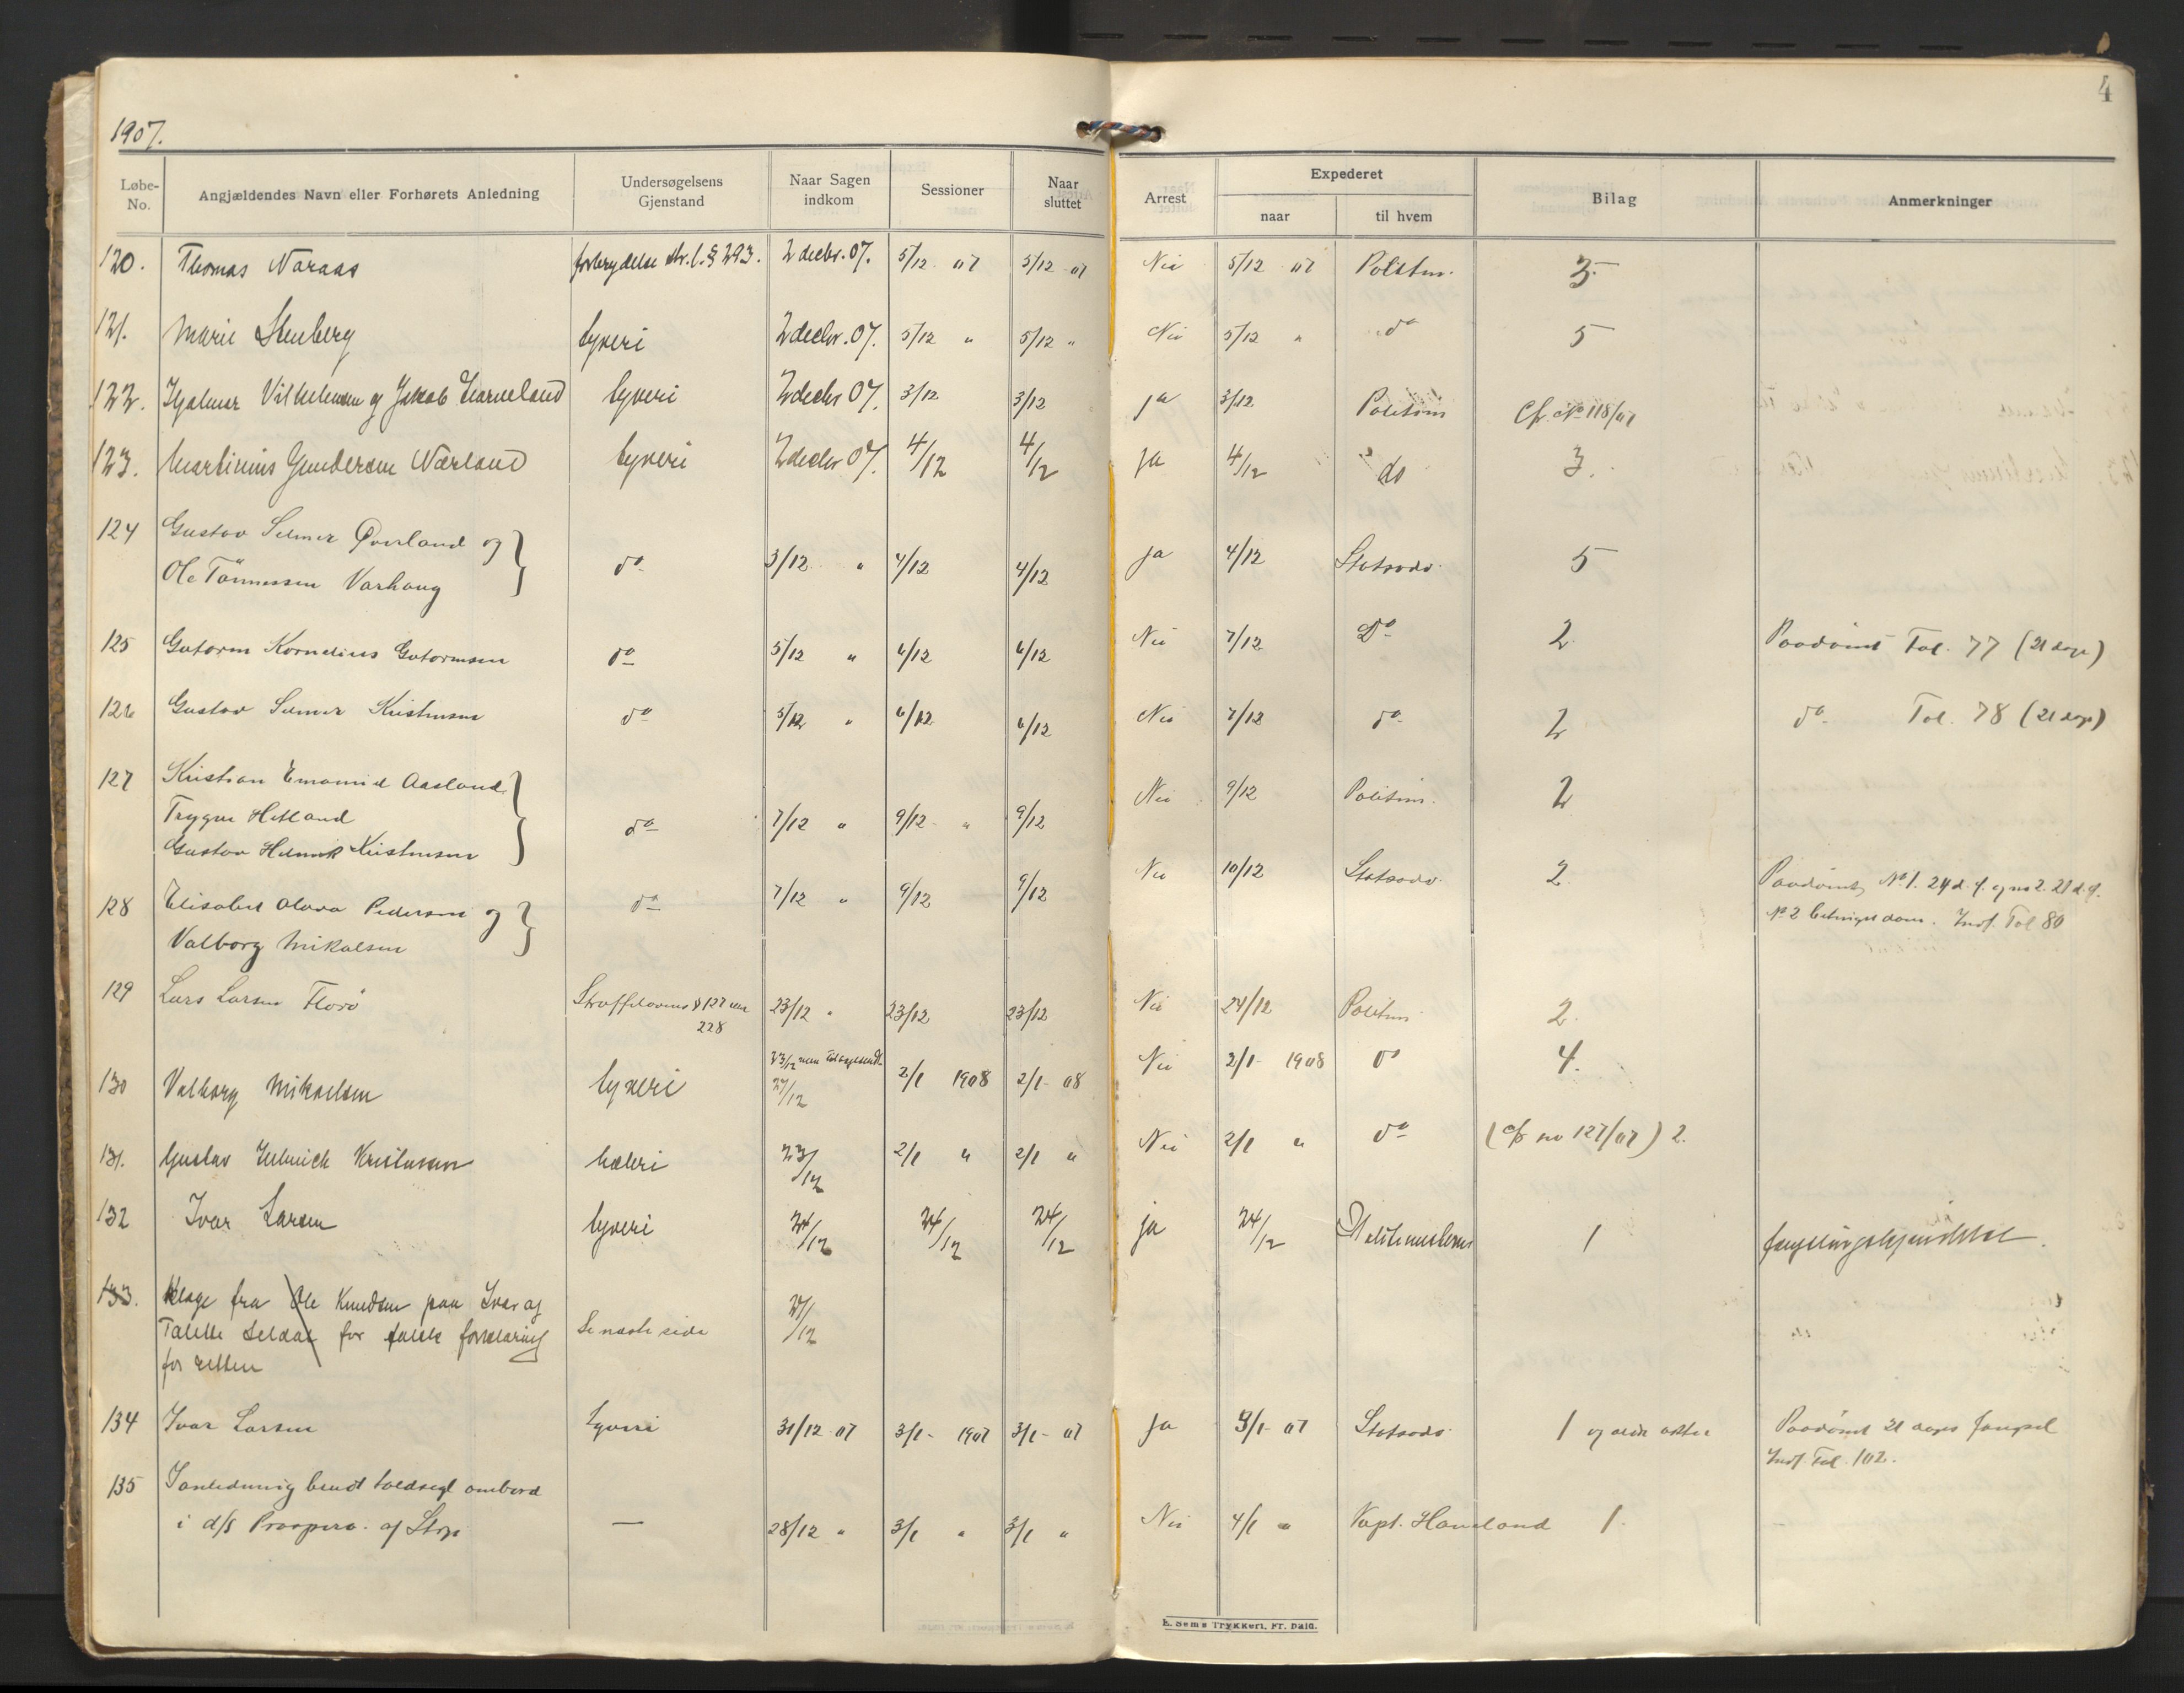 4
1907.
Løbe-No. Angjældendes Navn eller Forhørets Anledning Undersøgelsens Gjenstand Naar Sagen indkom Sessioner Naar sluttet Arrest Expederet naar til hvem Bilag Anmerkninger
120. Thomas Varaas forbrydelse str.l. § 293. 2 decbr. 07. 5/12 07 5/12 07 Nei 5/12 07 Politm. 3
121. Marie Stenberg tyveri 2 decbr. 07. 5/12 " 5/12 " Nei 5/12 " do 5
122. Hjalmar Vilhelmsen og Jakob tyveri 2 decbr 07. 3/12 3/12 ja 3/12 Politim Cfr. No 118/07
123. Martinius Gundersen Nærland tyveri 2 decbr 07. 4/12 4/12 ja 4/12 do 3.
124 Gustav Selmer Øverland og
Ole Tönnessen Varhaug do 3/12 " 4/12 4/12 ja 4/12 Statsadv. 5
125 Gutorm Kornelius Gutormsen do 5/12 " 6/12 6/12 Nei 7/12 Do 2. Paadömt Fol. 77 (21 dage)
126 Gustav Selmer Kristensen do 5/12 " 6/12 6/12 Nei 7/12 do 2 do Fol. 78 (21 dage)
127 Kristian Emanuel Aasland
Trygve Hetland do 7/12 " 9/12 " 9/12 Nei 9/12 Politim. 2
Gustav Helmik Kristensen
128 Elisabet Olava Pedersen og do 7/12 " 9/12 9/12 Nei 10/12 Statsadv. 2. Paadömt, No 1. 24 d. f. og no 2. 21 d. f.
Valborg Mikalsen No 2 betinget dom. Indf. Fol 80
129 Lars Larsen Florö Straffelovens § 127 228 23/12 " 23/12 23/12 Nei 24/12 Politim 2.
130 Valborg Mikaelsen tyveri 23/12 men 27/12 2/1 1908 2/1 - 08 Nei 2/1 - 1908 do 4.
131. Gustav Helmich Kristensen hæleri 23/12 2/1 " 2/1 " Nei 2/1 " do (cfr no 127/07) 2.
132 Ivar Larsen tyveri 24/12 24/12 24/12 ja 24/12 Politimesteren 1
133. Klage fra Ole Knudsen paa Ivar og
Talette Seldal for falsk forklaring Se næste side 27/12
for retten
134 Ivar Larsen tyveri 31/12 07 3/1 - 1907 3/1 - 07 ja 3/1 - 07 Statsadv. 1 og akter Paadömt 21 dages fængsel
Indf. Fol. 102.
135 I anledning brudt toldsegl ombord
i d/s Prospero. af — 28/12 " 3/1 " 3/1 " Nei 4/1 " Kapt. Haveland 1.
E. Sem's Trykkeri, Fr. Hald.